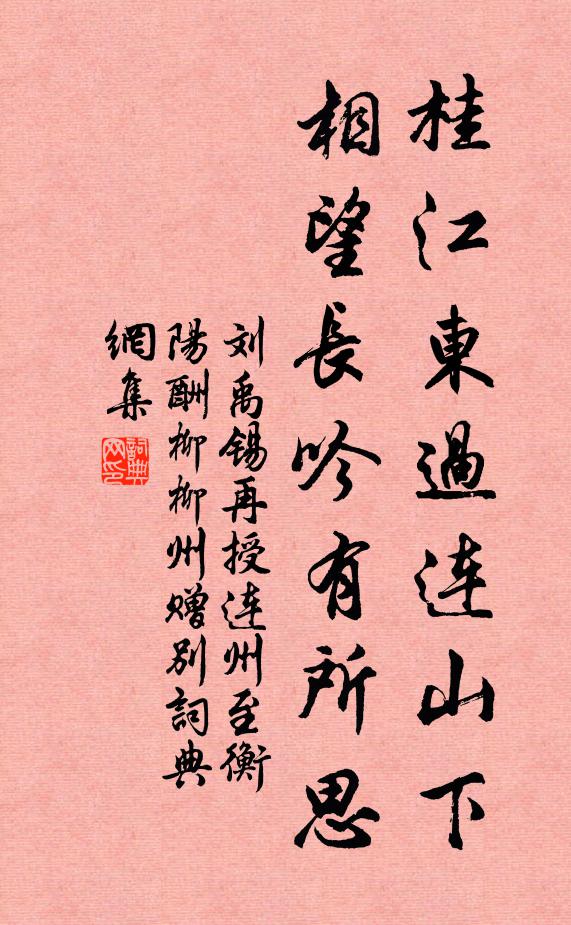 桂江東過连山下
相望長吟有所思
刘禹锡再授连州至衡
陽酬柳柳州赠别詞典
網集
詞典网印